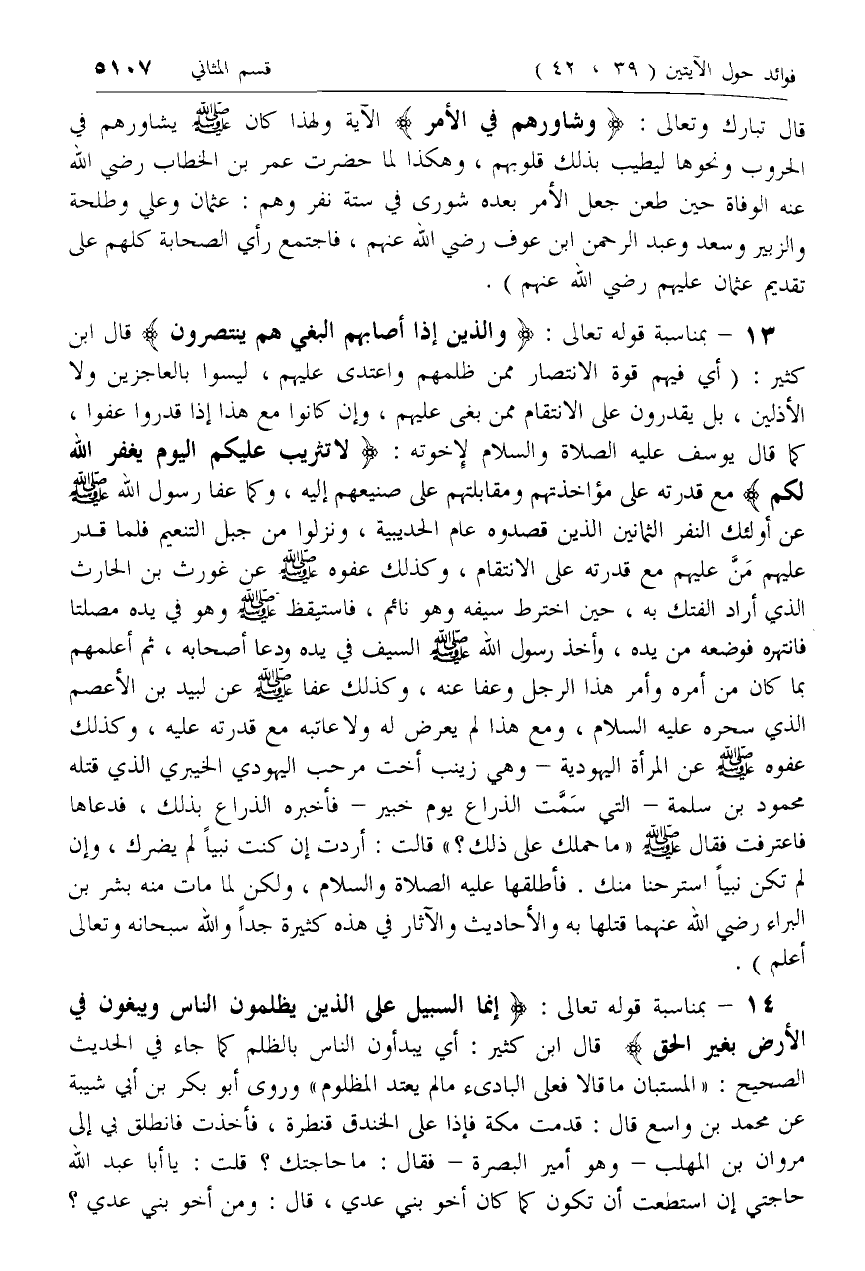 فوائد حول الآيتين ( ٣٩ ، ٤٢ ) قسم المثاني ٥١٠٧
قال تبارك وتعالى : ﴿ وشاورهم في الأمر ﴾ الآية ولهذا كان ﷺ يشاورهم في
الحروب ونحوها ليطيب بذلك قلوبهم ، وهكذا لما حضرت عمر بن الخطاب رضي الله
عنه الوفاة حين طعن جعل الأمر بعده شورى في ستة نفر وهم : عثمان وعلي وطلحة
والزبير وسعد وعبد الرحمن ابن عوف رضي الله عنهم ، فاجتمع رأي الصحابة كلهم على
تقديم عثمان عليهم رضي الله عنهم ) .
١٣ – بمناسبة قوله تعالى : ﴿ والذين إذا أصابهم البغي هم ينتصرون ﴾ قال ابن
كثير : ( أي فيهم قوة الانتصار ممن ظلمهم واعتدى عليهم ، ليسوا بالعاجزين ولا
الأذلين ، بل يقدرون على الانتقام ممن بغى عليهم ، وإن كانوا مع هذا إذا قدروا عفوا ،
كما قال يوسف عليه الصلاة والسلام لإخوته : ﴿ لاتثريب عليكم اليوم يغفر الله
لكم ﴾ مع قدرته على مؤاخذتهم ومقابلتهم على صنيعهم إليه ، وكما عفا رسول الله ﷺ
عن أولئك النفر الثمانين الذين قصدوه عام الحديبية ، ونزلوا من جبل التنعيم فلما قدر
عليهم مَنَّ عليهم مع قدرته على الانتقام ، وكذلك عفوه ﷺ عن غورث بن الحارث
الذي أراد الفتك به ، حين اخترط سيفه وهو نائم ، فاستيقظ ﷺ وهو في يده مصلتا
فانتهره فوضعه من يده ، وأخذ رسول الله ﷺ السيف في يده ودعا أصحابه ، ثم أعلمهم
بما كان من أمره وأمر هذا الرجل وعفا عنه ، وكذلك عفا ﷺ عن لبيد بن الأعصم
الذي سحره عليه السلام ، ومع هذا لم يعرض له ولاعاتبه مع قدرته عليه ، وكذلك
عفوه ﷺ عن المرأة اليهودية – وهي زينب أخت مرحب اليهودي الخيبري الذي قتله
محمود بن سلمة – التي سَمَّت الذراع يوم خيبر – فأخبره الذراع بذلك ، فدعاها
فاعترفت فقال ﷺ « ماحملك على ذلك؟ » قالت : أردت إن كنت نبياً لم يضرك ، وإن
لم تكن نبياً استرحنا منك . فأطلقها عليه الصلاة والسلام ، ولكن لما مات منه بشر بن
البراء رضي الله عنهما قتلها به والأحاديث والآثار في هذه كثيرة جداً والله سبحانه وتعالى
أعلم ) .
١٤ – بمناسبة قوله تعالى : ﴿ إنما السبيل على الذين يظلمون الناس ويبغون في
الأرض بغير الحق ﴾ قال ابن كثير : أي يبدأون الناس بالظلم كما جاء في الحديث
الصحيح : « المستبان ماقالا فعلى البادىء مالم يعتد المظلوم » وروى أبو بكر بن أبي شيبة
عن محمد بن واسع قال : قدمت مكة فإذا على الخندق قنطرة ، فأخذت فانطلق بي إلى
مروان بن المهلب – وهو أمير البصرة – فقال : ماحاجتك ؟ قلت : ياأبا عبد الله
حاجتي إن استطعت أن تكون كما كان أخو بني عدي ، قال : ومن أخو بني عدي ؟